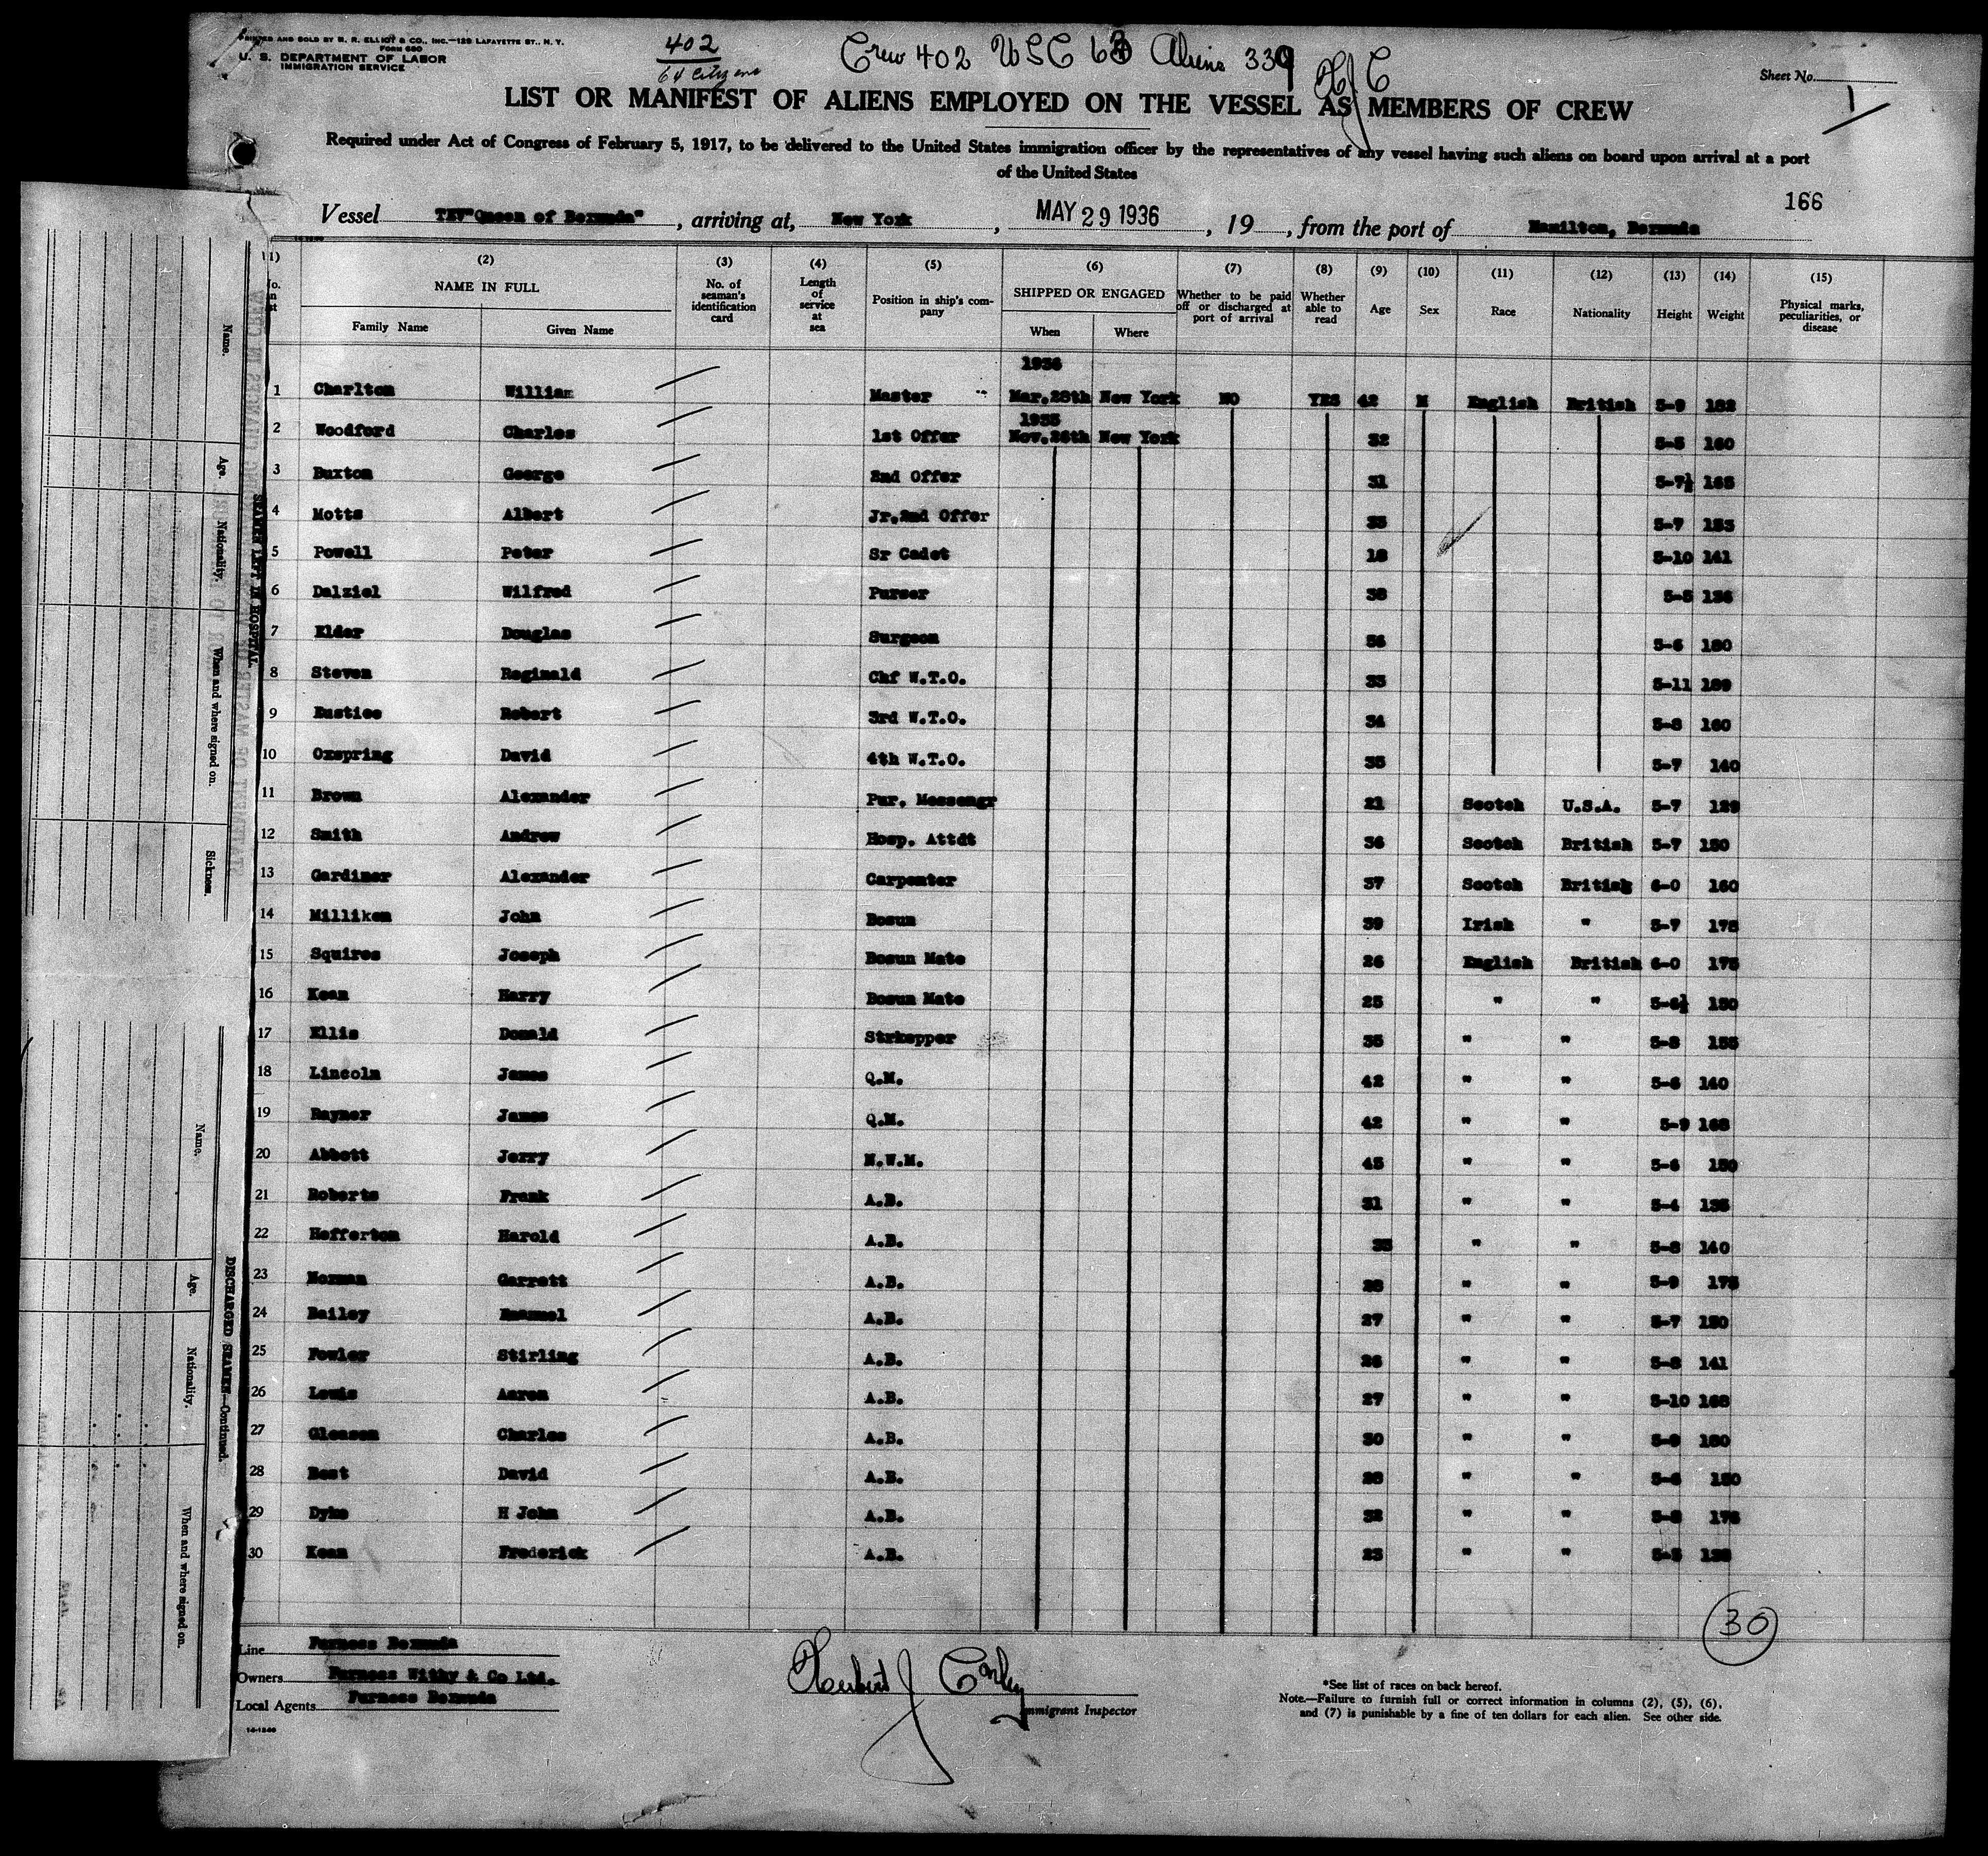 PRINTED AND SOLD BY R. R. ELLIOT & CO., INC.—129 LAFAYETTE ST., N. Y.
FORM 680
U. S. DEPARTMENT OF LABOR
IMMIGRATION SERVICE
402
64 Citizens
Crew 402 USC 63 Aliens 339
HJC
Sheet No.
1
LIST OR MANIFEST OF ALIENS EMPLOYED ON THE VESSEL AS MEMBERS OF CREW
Required under Act of Congress of February 5, 1917, to be delivered to the United States immigration officer by the representatives of any vessel having such aliens on board upon arrival at a port
of the United States
166
Vessel TEV"Queen of Bermuda", arriving at, New York, MAY 29 1936, 19 , from the port of Hamilton, Bermuda
(1) (2) (3) (4) (5) (6) (7) (8) (9) (10) (11) (12) (13) (14) (15)
NAME IN FULL
Family Name Given Name
No. of seaman's identification card
Length of service at sea
Position in ship's company
SHIPPED OR ENGAGED
When Where
Whether to be paid off or discharged at port of arrival
Whether able to read
Age Sex Race Nationality Height Weight
Physical marks, peculiarities, or disease
1936
1 Charlton William Master Mar.28th New York NO YES 42 M English British 5-9 182
1935
2 Woodford Charles 1st Offer Nov.26th New York 32 5-5 160
3 Buxton George 2nd Offer 31 5-7½ 165
4 Motts Albert Jr.2nd Offer 35 5-7 153
5 Powell Peter Sr Cadet 18 5-10 141
6 Dalziel Wilfred Purser 38 5-5 136
7 Elder Douglas Surgeon 56 5-6 180
8 Steven Reginald Chf W.T.O. 33 5-11 189
9 Eustice Robert 3rd W.T.O. 34 5-8 160
10 Oxspring David 4th W.T.O. 35 5-7 140
11 Brown Alexander Pur. Messengr 21 Scotch U.S.A. 5-7 129
12 Smith Andrew Hosp. Attdt 36 Scotch British 5-7 150
13 Gardiner Alexander Carpenter 37 Scotch British 6-0 160
14 Milliken John Bosun 39 Irish " 5-7 175
15 Squires Joseph Bosun Mate 26 English British 6-0 175
16 Kean Harry Bosun Mate 25 " " 5-6½ 150
17 Ellis Donald Strkepper 35 " " 5-8 155
18 Lincoln James Q.M. 42 " " 5-6 140
19 Rayner James Q.M. 42 " " 5-9 168
20 Abbott Jerry N.W.M. 45 " " 5-6 150
21 Roberts Frank A.B. 31 " " 5-4 135
22 Hefferton Harold A.B. 35 " " 5-8 140
23 Norman Garrett A.B. 28 " " 5-9 175
24 Bailey Emanuel A.B. 27 " " 5-7 150
25 Fowler Stirling A.B. 26 " " 5-8 141
26 Lewis Aaron A.B. 27 " " 5-10 168
27 Gleason Charles A.B. 30 " " 5-9 180
28 Best David A.B. 28 " " 5-6 150
29 Dyke H John A.B. 32 " " 5-8 175
30 Kean Frederick A.B. 23 " " 5-5 138
30
Line Furness Bermuda
Owners Furness Withy & Co Ltd.
Local Agents Furness Bermuda
14-1240
Herbert J Conley
Immigrant Inspector
*See list of races on back hereof.
Note.—Failure to furnish full or correct information in columns (2), (5), (6),
and (7) is punishable by a fine of ten dollars for each alien. See other side.
SEAMEN LEFT IN HOSPITAL
Name. Age. Nationality. When and where signed on. Sickness.
DISCHARGED SEAMEN—Continued.
Name. Age. Nationality. When and where signed on.